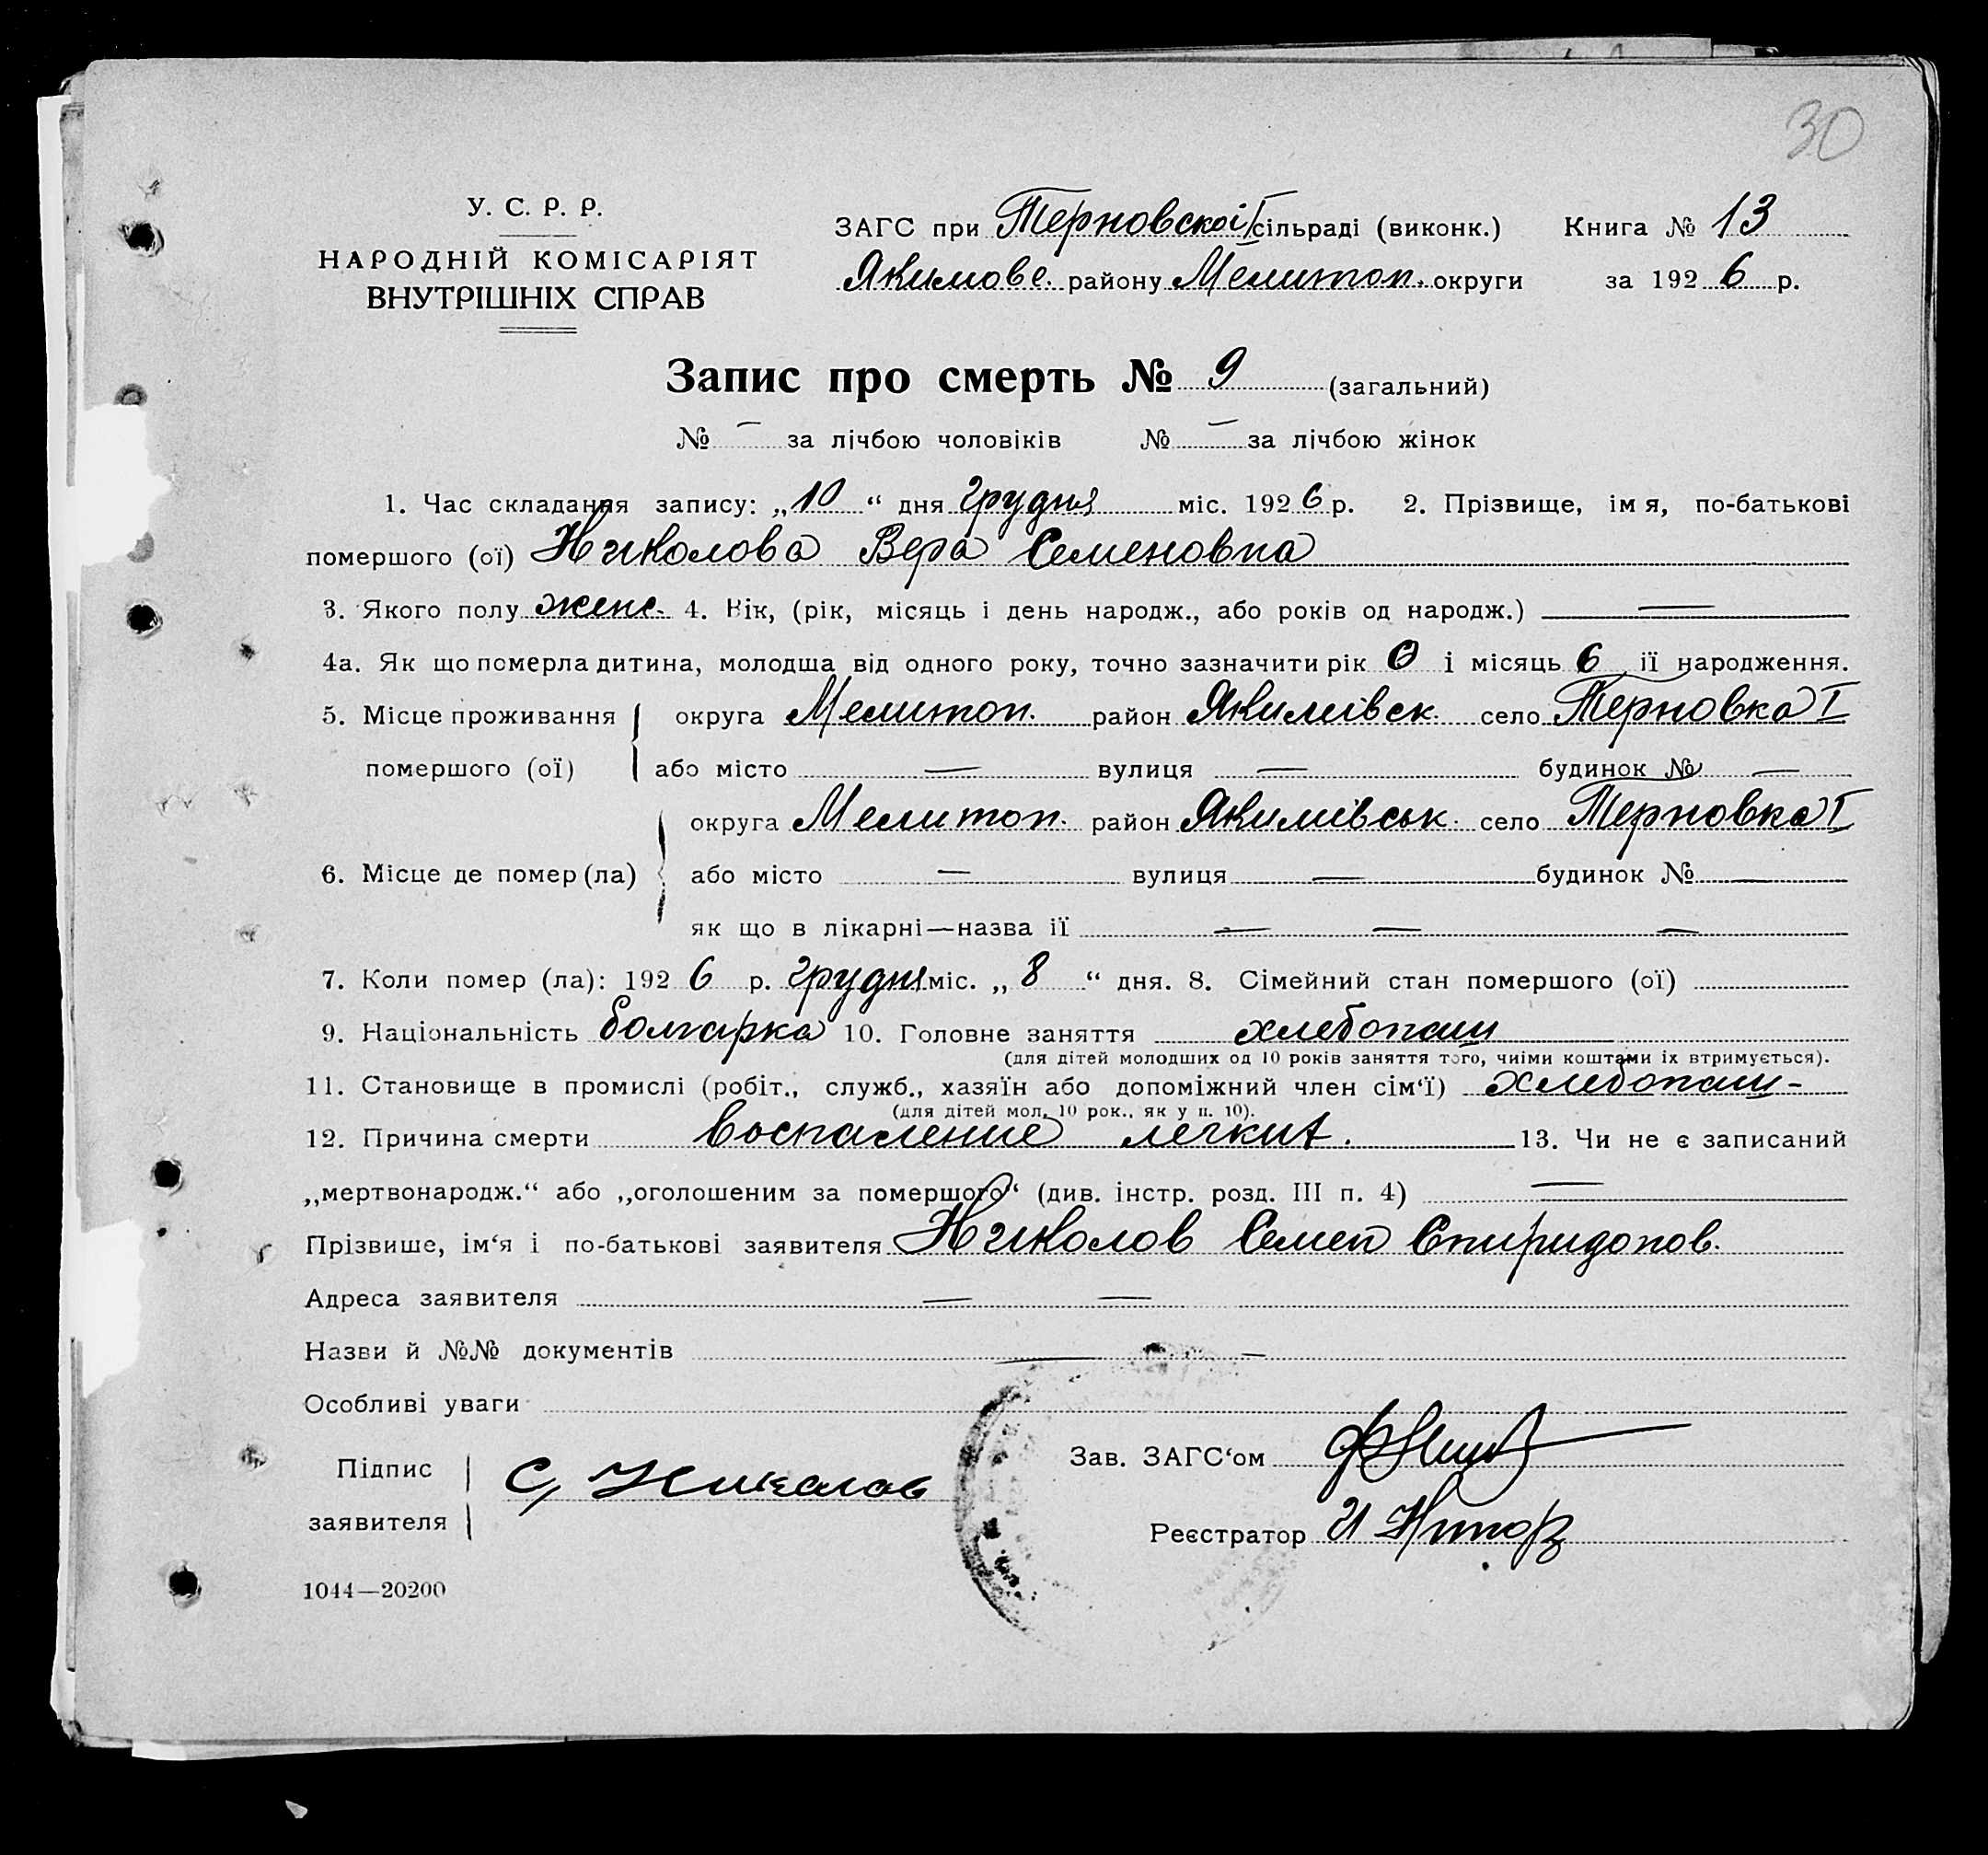 30
У. С. Р. Р.
НАРОДНІЙ КОМІСАРІЯТ
ВНУТРІШНІХ СПРАВ
ЗАГС при Терновской I сільраді (виконк.) Книга № 13
Якимовс. району Мелитоп. округи за 1926 р.
Запис про смерть № 9 (загальний)
№ — за лічбою чоловіків № — за лічбою жінок
1. Час складання запису: „10“ дня грудня міс. 1926 р. 2. Прізвище, ім я, по-батькові
помершого (ої) Николова Вера Семеновна
3. Якого полу женс. 4. Вік, (рік, місяць і день народж., або років од народж.) —
4а. Як що померла дитина, молодша від одного року, точно зазначити рік 0 і місяць 6 її народження.
5. Місце проживання округа Мелитоп. район Якимівск. село Терновка I
помершого (ої) або місто — вулиця — будинок № —
округа Мелитоп. район Якимівськ. село Терновка I
6. Місце де помер (ла) або місто — вулиця — будинок № —
як що в лікарні—назва її — — —
7. Коли помер (ла): 1926 р. грудня міс. „8“ дня. 8. Сімейний стан помершого (ої)
9. Національність болгарка 10. Головне заняття хлебопаш
(для дітей молодших од 10 років заняття того, чиїми коштами їх втримується).
11. Становище в промислі (робіт., служб., хазяїн або допоміжний член сім‘ї) хлебопаш-
(для дітей мол. 10 рок., як у п. 10).
12. Причина смерти воспаление легких. 13. Чи не є записаний
„мертвонародж.“ або „оголошеним за помершого“ (див. інстр. розд. III п. 4) —
Прізвише, ім‘я і по-батькові заявителя Николов Семен Спиридонов.
Адреса заявителя — —
Назви й №№ документів — —
Особливі уваги
Підпис
заявителя С. Николов
Зав. ЗАГС‘ом
Реєстратор И
1044—20200